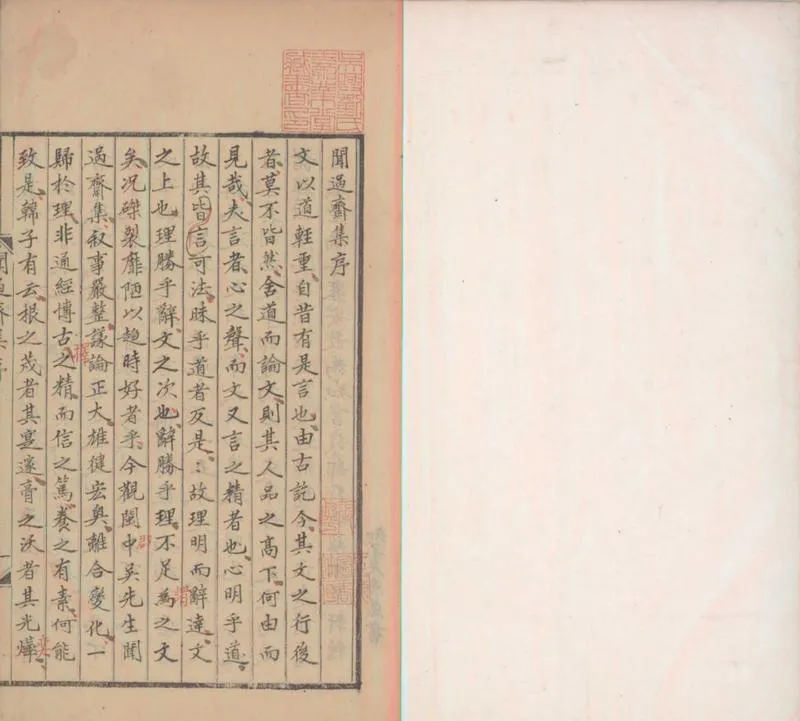 聞過齋集序
文以道輕重自昔有是言也由古訖今其文之行後
者莫不皆然舍道而論文則其人品之高下何由而
見哉夫言者心之聲而文又言之精者也心明乎道
故其皆言可法昧乎道者反是：故理明而辭達文
之上也理勝乎辭文之次也辭勝乎理不足為之文
矣况磔裂靡陋以趨時好者乎今觀閩中吳先生聞
過齋集叙事嚴整議論正大雄健宏奥離合變化一
歸於理非通經愽古之精而信之篤養之有素何能
致是韓子有云根之茂者其實遂膏之沃者其光燁
聞過齋集序
吳興劉氏嘉業堂藏書印